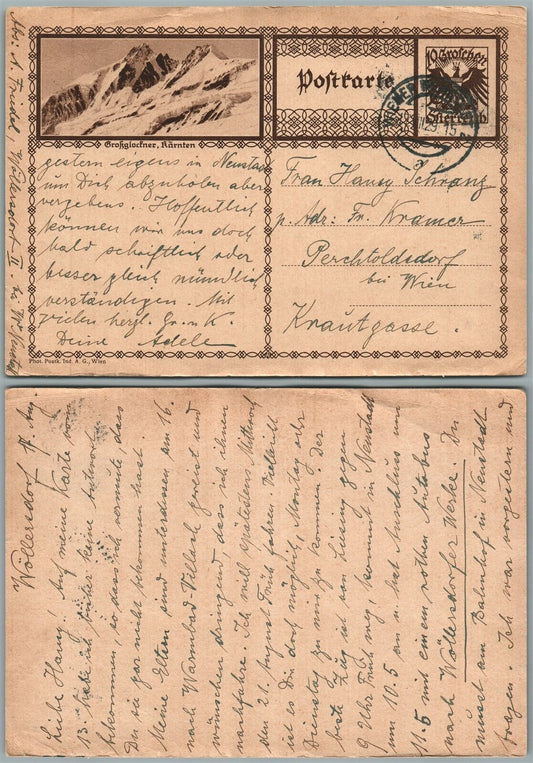 Großglockner, Kärnten
Postkarte
10 Groschen
Österreich
Adele
Wöllersdorf II
gestern eigens in Neustadt
um Dich abzuholen aber
vergebens. Hoffentlich
können wir uns doch
bald schriftlich oder
besser gleich mündlich
verständigen. Mit
vielen herzl. Gr. u. K.
Deine Adele
Frau Hansy Schranz
p. Adr: Fr. Kramer
Perchtoldsdorf
bei Wien
Krautgasse.
Phot. Postk. Ind. A. G., Wien
Wöllersdorf 17. Aug.
Liebe Hansy! Auf meine Karte vom
13. habe ich bisher keine Antwort
bekommen, so dass ich vermute, dass
Du sie gar nicht bekommen hast.
Meine Eltern sind unterdessen am 16.
nach Warmbad Villach gereist und
wünschen dringend, dass ich ihnen
nachfahre. Ich will spätestens Mittwoch
den 21. August früh fahren. Vielleicht
ist es Dir doch möglich, Montag oder
Dienstag zu mir zu kommen. Der
beste Zug ist von Liesing gegen
9 Uhr früh weg, kommt in Neustadt
um 10.5 an u. hat Anschluss um
11.5 mit einem rothen Autobus
nach Wöllersdorfer Werke. Du
müsst am Bahnhof in Neustadt
fragen. Ich war vorgestern und